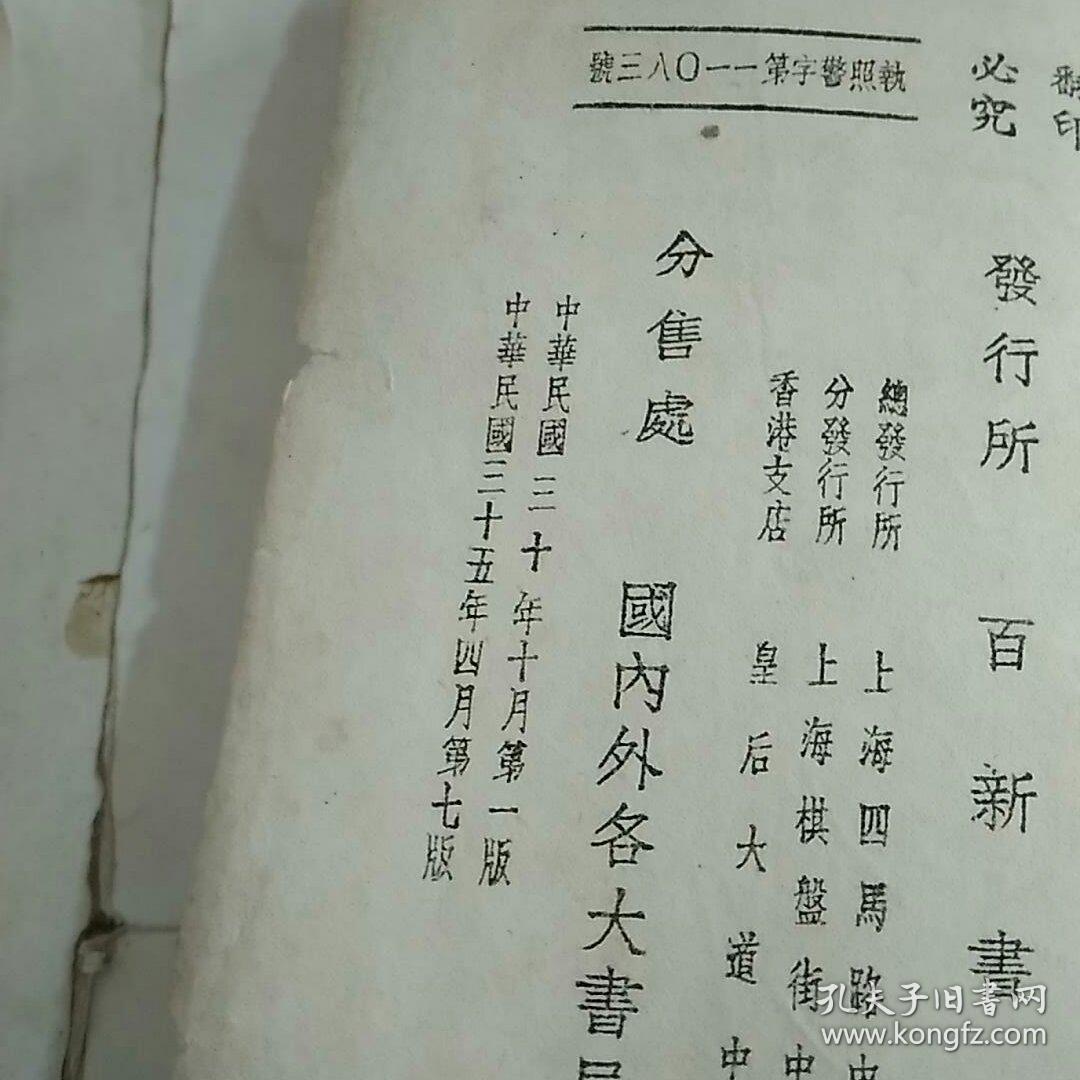 翻印
必究
執照警字第一一〇八三號
發行所 百新書
總發行所 上海四馬路中
分發行所 上海棋盤街中
香港支店 皇后大道中
分售處 國內外各大書
中華民國三十年十月第一版
中華民國三十五年四月第七版
孔夫子旧书网
www.kongfz.com